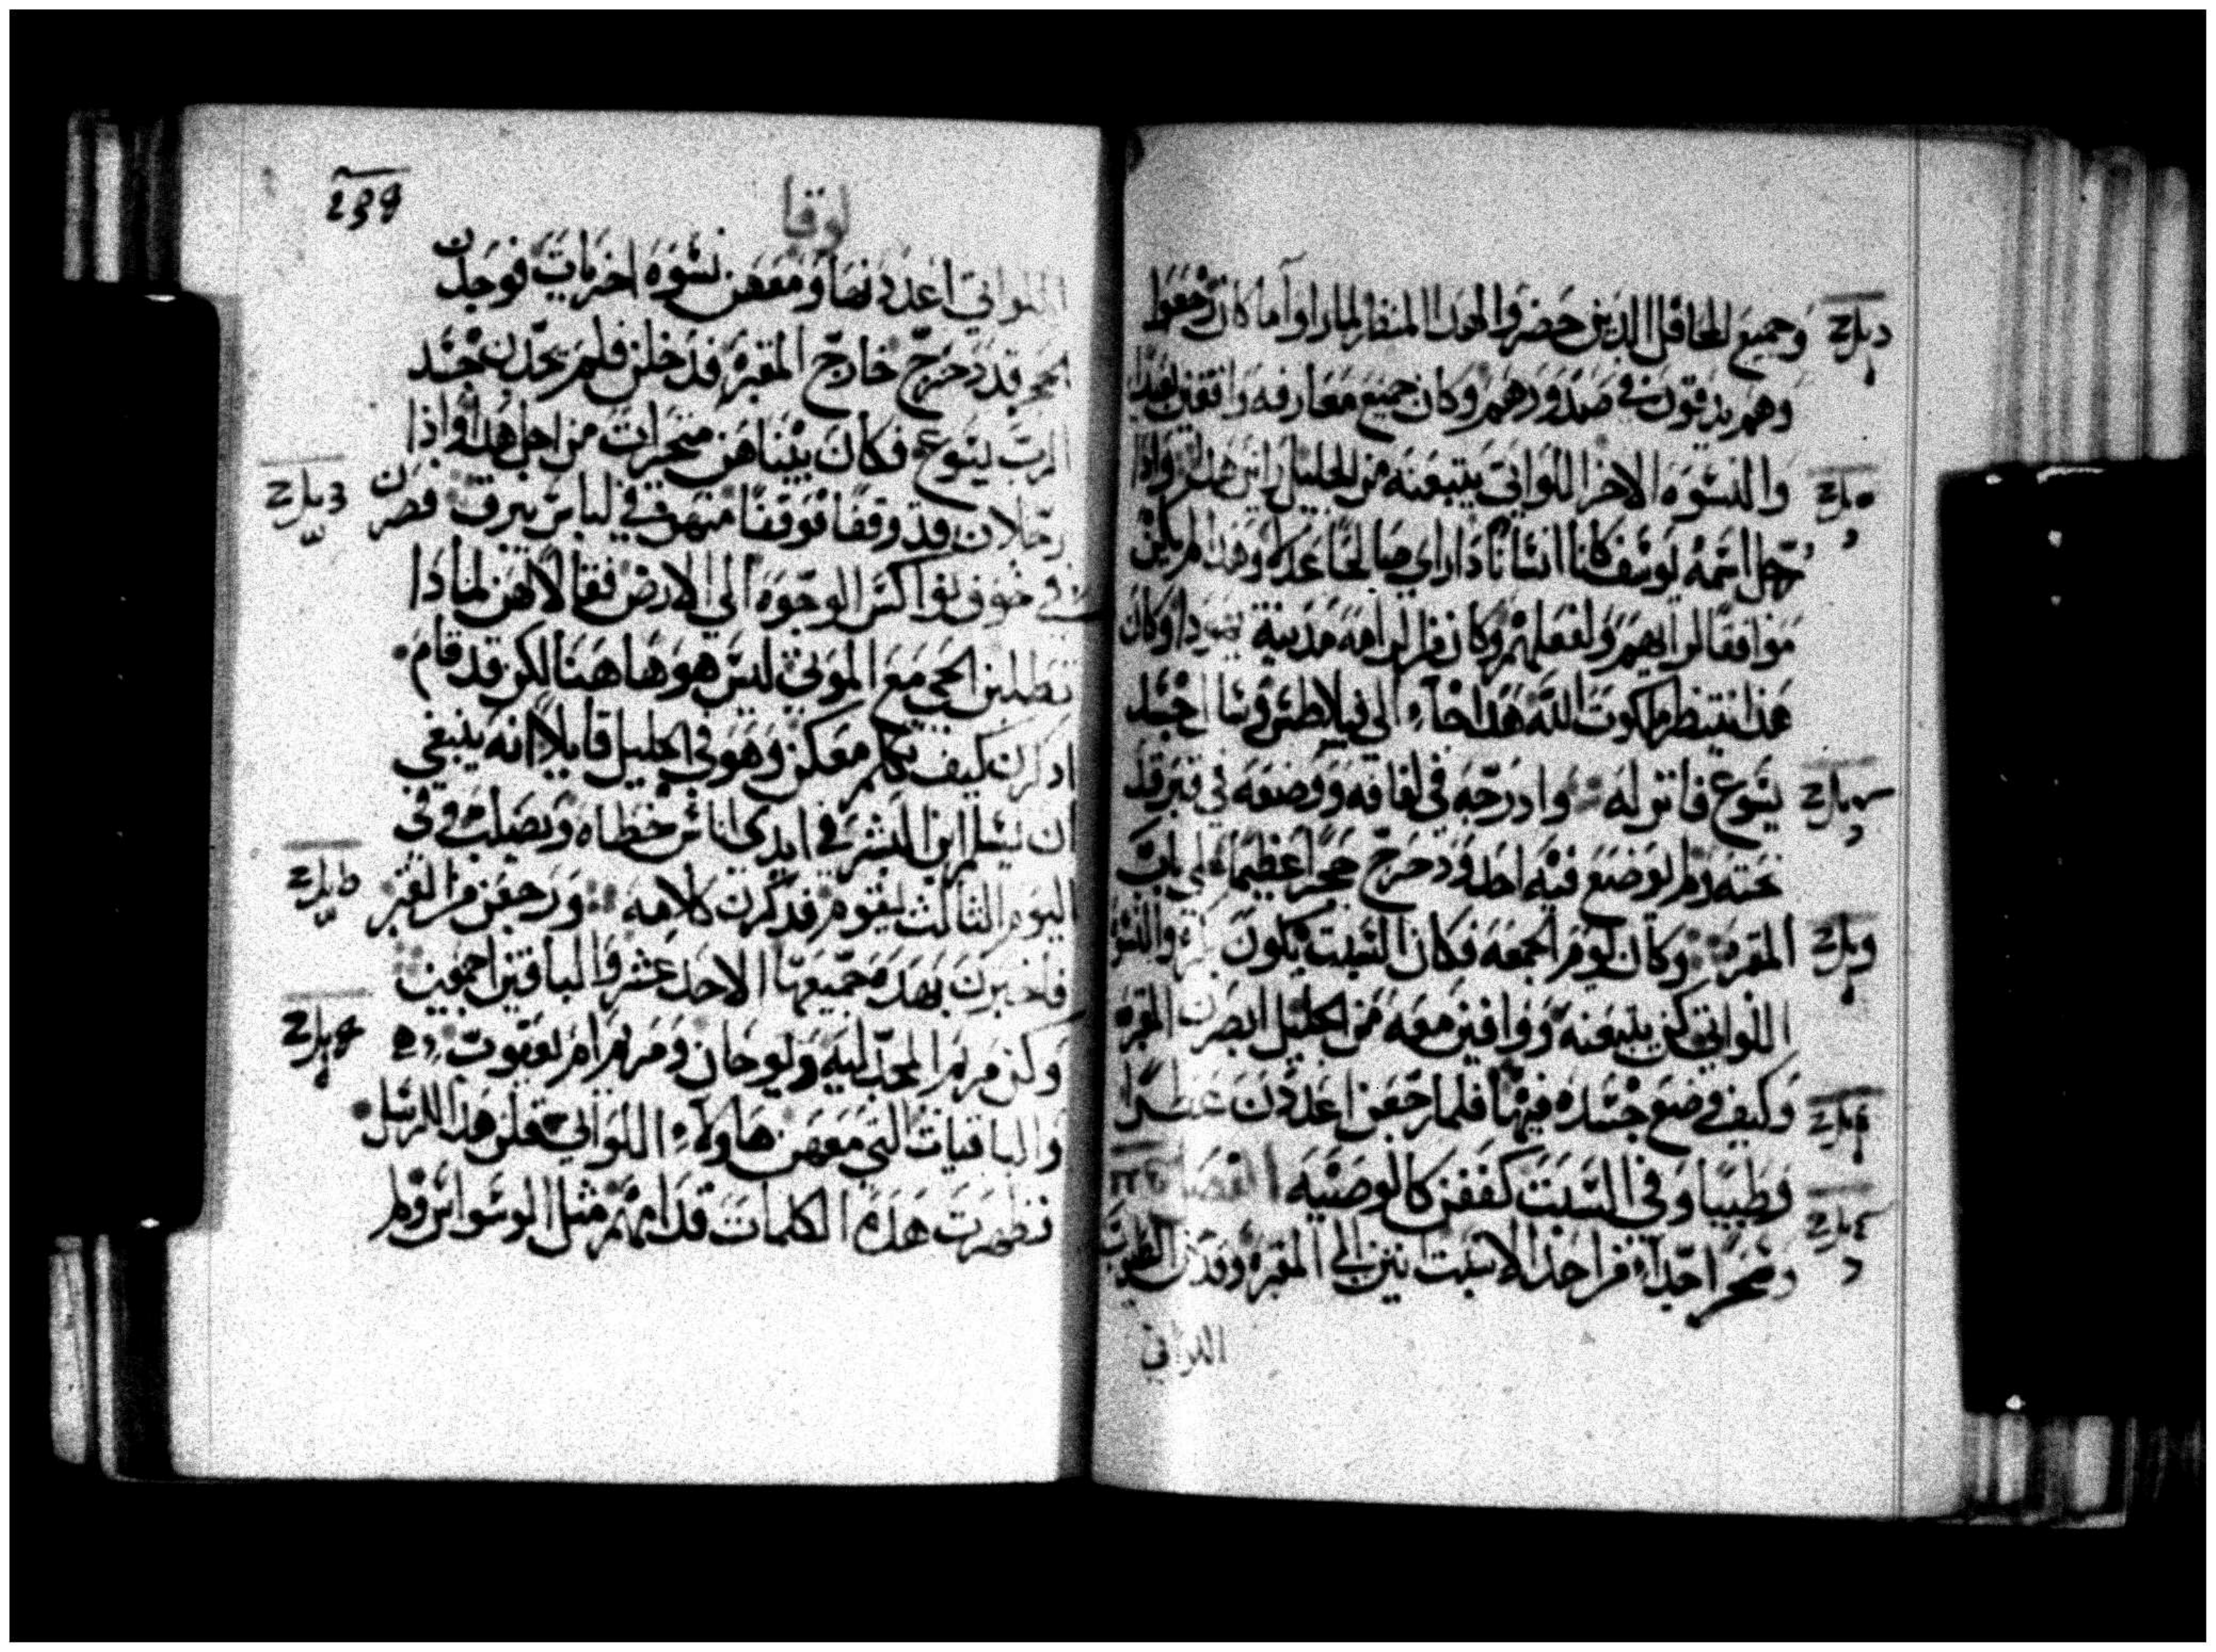 وجميع المحافل الذين حضروا لهذا المنظر لما راوا ما كان رجعوا
وهم يدقون في صدورهم وكان جميع معارفه واقفين بعيدا
والنسوه الاخر اللواتي يتبعنه من الجليل راين هذا واذا
رجل اسمه يوسف كان انسانا ذا راي صالحا عدلا وهذا لم يكن
موافقا لرايهم ولفعلهم وكان من الرامه مدينة يهودا وكان
هذا ينتظر ملكوت الله هذا جاء الي فيلاطس وسال جسد
يسوع فانزله وادرجه في لفافه ووضعه في قبر قد
نحته ولم يوضع فيه احد ودحرج حجرا عظيما علي باب
المقبره وكان يوم الجمعه فكان السبت يكون والنسوه
اللواتي كن يتبعنه ووافين معه من الجليل ابصرن المقبره
وكيف وضع جسده فيها فلما رجعن اعددن عطرا
وطيبا وفي السبت كففن كالوصيه الفصل
وسحرا جدا في احد السبت اتين الي المقبره وقدمن الطيوب
اللواتي
239
لوقا
اللواتي اعددنها ومعهن نسوه اخريات فوجدن
الحجر قد دحرج خارج المقبره فدخلن فلم يجدن جسد
الرب يسوع فكان بينما هن متحيرات من اجل هذا واذا
رجلان قد وقفا فوقفا منهن في لباس يبرق فصرن
في خوف ونواكسن الوجوه الي الارض فقالا لهن لماذا
تطلبن الحي مع الموتي ليس هو هاهنا لكن قد قام
اذكرن كيف تكلم معكن وهو في الجليل قايلا انه ينبغي
ان يسلم ابن البشر في ايدي اناس خطاه ويصلب وفي
اليوم الثالث يقوم فذكرن كلامه ورجعن من القبر
فاخبرن بهذه جميعها الاحد عشر والباقين اجمعين
وكن مريم المجدليه ويوحان ومريم ام يعقوب
والباقيات التي معهن هاولاء اللواتي قلن هذا للرسل
فظهرت هذه الكلمات قدامهم مثل الوسواس ولم